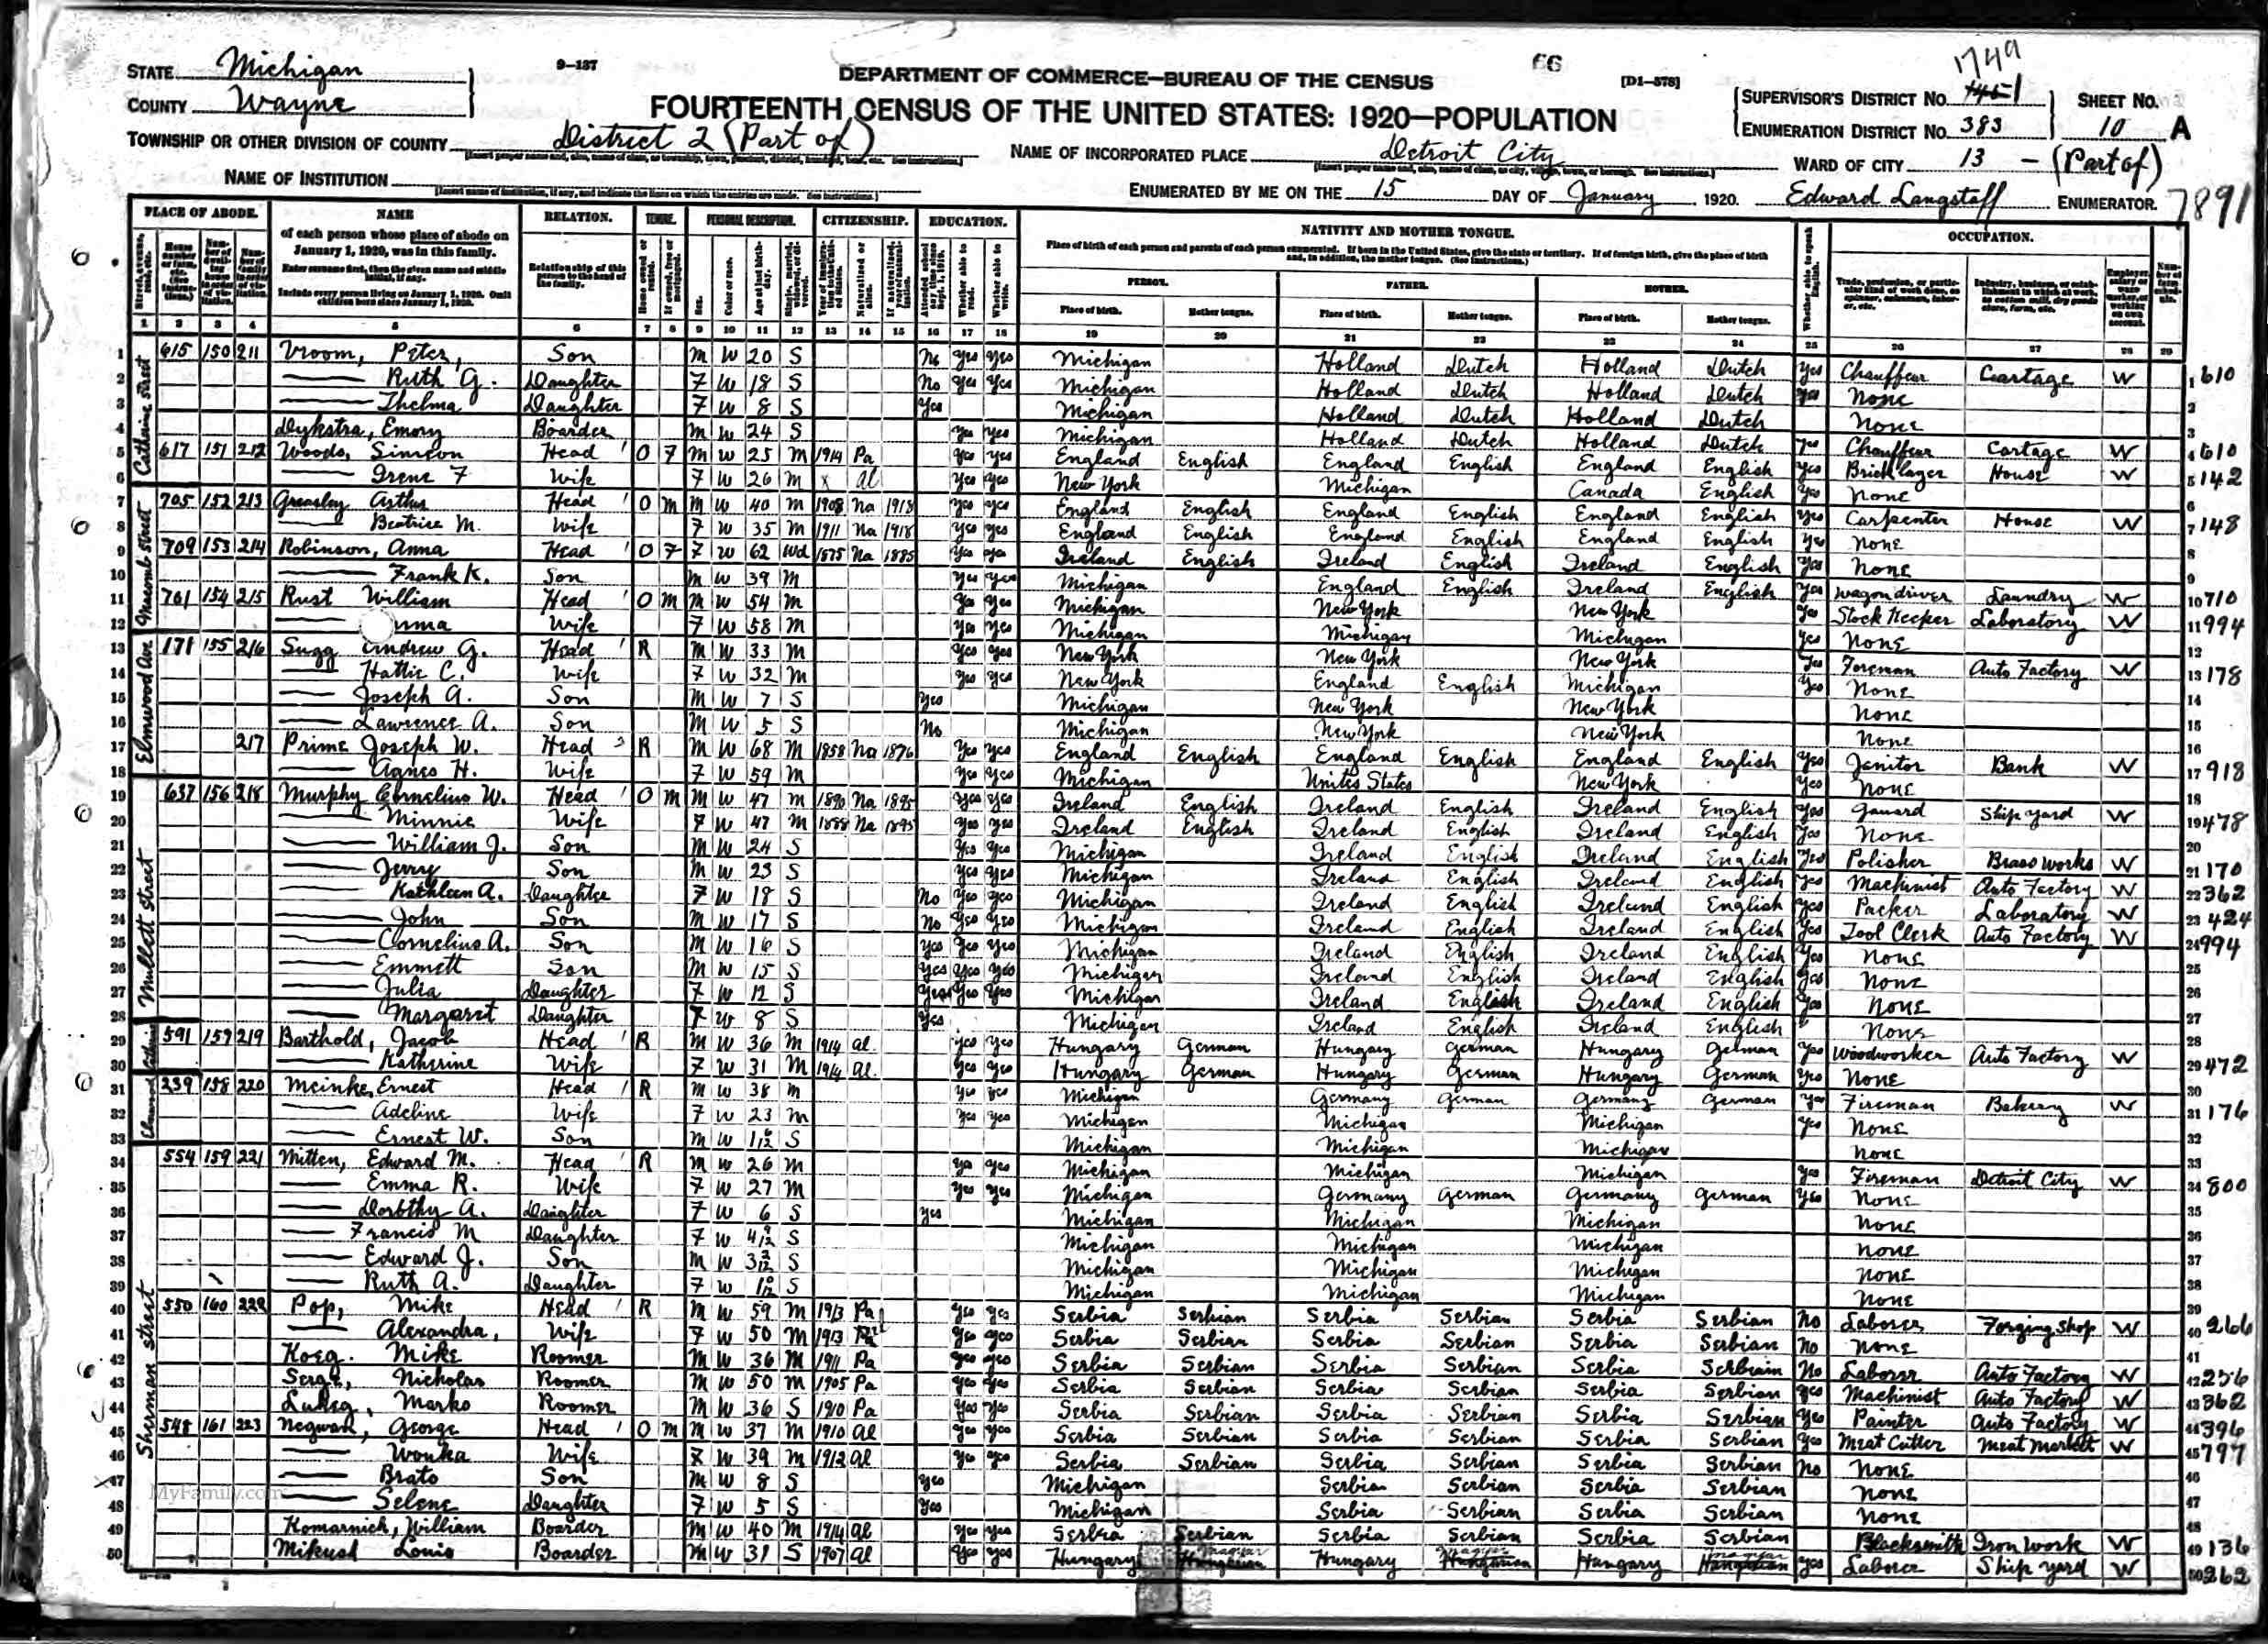 STATE Michigan
COUNTY Wayne
9-137
DEPARTMENT OF COMMERCE—BUREAU OF THE CENSUS
66
[D1-578]
1749
FOURTEENTH CENSUS OF THE UNITED STATES: 1920—POPULATION
SUPERVISOR'S DISTRICT No. 1
ENUMERATION DISTRICT No. 383
SHEET No. 10 A
TOWNSHIP OR OTHER DIVISION OF COUNTY District 2 (Part of)
NAME OF INCORPORATED PLACE Detroit City
WARD OF CITY 13 - (Part of)
NAME OF INSTITUTION
ENUMERATED BY ME ON THE 15 DAY OF January, 1920. Edward Langstaff ENUMERATOR.
7891
PLACE OF ABODE. NAME RELATION. TENURE. PERSONAL DESCRIPTION. CITIZENSHIP. EDUCATION. NATIVITY AND MOTHER TONGUE. OCCUPATION.
of each person whose place of abode on January 1, 1920, was in this family.
Enter surname first, then the given name and middle initial, if any.
Include every person living on January 1, 1920. Omit children born since January 1, 1920.
Relationship of this person to the head of the family.
Place of birth of each person and parents of each person enumerated. If born in the United States, give the state or territory. If of foreign birth, give the place of birth and, in addition, the mother tongue. (See Instructions.)
PERSON. FATHER. MOTHER.
Place of birth. Mother tongue. Place of birth. Mother tongue. Place of birth. Mother tongue.
1 2 3 4 5 6 7 8 9 10 11 12 13 14 15 16 17 18 19 20 21 22 23 24 25 26 27 28 29
Catharine Street
1 615 150 211 Vroom, Peter, Son M W 20 S No Yes Yes Michigan Holland Dutch Holland Dutch Yes Chauffeur Cartage W 610
2 Ruth G. Daughter F W 18 S No Yes Yes Michigan Holland Dutch Holland Dutch Yes None
3 Thelma Daughter F W 8 S Yes Michigan Holland Dutch Holland Dutch None
4 Dykstra, Emory Boarder M W 24 S Yes Yes Michigan Holland Dutch Holland Dutch Yes Chauffeur Cartage W 610
5 617 151 212 Woods, Simeon Head O F M W 25 M 1914 Pa Yes Yes England English England English England English Yes Bricklayer House W 142
6 Irene F Wife F W 26 M x Al Yes Yes New York Michigan Canada English Yes None
Macomb Street
7 705 152 213 Greasley Arthur Head O M M W 40 M 1908 Na 1918 Yes Yes England English England English England English Yes Carpenter House W 148
8 Beatrice M. Wife F W 35 M 1911 Na 1918 Yes Yes England English England English England English Yes None
9 709 153 214 Robinson, Anna Head O F F W 62 Wd 1875 Na 1885 Yes Yes Ireland English Ireland English Ireland English Yes None
10 Frank K. Son M W 39 M Yes Yes Michigan England English Ireland English Yes Wagon driver Laundry W 710
11 701 154 215 Rust William Head O M M W 54 M Yes Yes Michigan New York New York Yes Stock Keeper Laboratory W 994
12 mma Wife F W 58 M Yes Yes Michigan Michigan Michigan Yes None
Elmwood Ave
13 171 155 216 Sugg Andrew G. Head R M W 33 M Yes Yes New York New York New York Yes Foreman Auto Factory W 178
14 Hattie C. Wife F W 32 M Yes Yes New York England English Michigan Yes None
15 Joseph A. Son M W 7 S Yes Michigan New York New York None
16 Lawrence A. Son M W 5 S No Michigan New York New York None
17 217 Prime Joseph W. Head R M W 68 M 1858 Na 1876 Yes Yes England English England English England English Yes Janitor Bank W 918
18 Agnes H. Wife F W 59 M Yes Yes Michigan United States New York Yes None
Mullett Street
19 637 156 218 Murphy Cornelius W. Head O M M W 47 M 1890 Na 1895 Yes Yes Ireland English Ireland English Ireland English Yes Gauard Ship yard W 478
20 Minnie Wife F W 47 M 1888 Na 1895 Yes Yes Ireland English Ireland English Ireland English Yes None
21 William J. Son M W 24 S Yes Yes Michigan Ireland English Ireland English Yes Polisher Brass works W 170
22 Jerry Son M W 23 S Yes Yes Michigan Ireland English Ireland English Yes Machinist Auto Factory W 362
23 Kathleen A. Daughter F W 18 S No Yes Yes Michigan Ireland English Ireland English Yes Packer Laboratory W 424
24 John Son M W 17 S No Yes Yes Michigan Ireland English Ireland English Yes Tool Clerk Auto Factory W 994
25 Cornelius A. Son M W 16 S Yes Yes Yes Michigan Ireland English Ireland English Yes None
26 Emmett Son M W 15 S Yes Yes Yes Michigan Ireland English Ireland English Yes None
27 Julia Daughter F W 12 S Yes Yes Yes Michigan Ireland English Ireland English Yes None
28 Margaret Daughter F W 8 S Yes Michigan Ireland English Ireland English None
29 591 157 219 Barthold, Jacob Head R M W 36 M 1914 Al Yes Yes Hungary German Hungary German Hungary German Yes Woodworker Auto Factory W 472
30 Katherine Wife F W 31 M 1914 Al. Yes Yes Hungary German Hungary German Hungary German Yes None
31 239 158 220 Meinke, Ernest Head R M W 38 M Yes Yes Michigan Germany German Germany German Yes Fireman Bakery W 176
32 Adeline Wife F W 23 M Yes Yes Michigan Michigan Michigan Yes None
33 Ernest W. Son M W S Michigan Michigan Michigan None
Sherman Street
34 554 159 221 Mitten, Edward M. Head R M W 26 M Yes Yes Michigan Michigan Michigan Yes Fireman Detroit City W 800
35 Emma R. Wife F W 27 M Yes Yes Michigan Germany German Germany German Yes None
36 Dorothy A. Daughter F W 6 S Yes Michigan Michigan Michigan None
37 Francis M Daughter F W S Michigan Michigan Michigan None
38 Edward J. Son M W S Michigan Michigan Michigan None
39 Ruth A. Daughter F W S Michigan Michigan Michigan None
40 550 160 222 Pop, Mike Head R M W 59 M 1913 Pa Yes Yes Serbia Serbian Serbia Serbian Serbia Serbian No Laborer Forging Shop W 266
41 Alexandra, Wife F W 50 M 1913 Yes Yes Serbia Serbian Serbia Serbian Serbia Serbian No None
42 Mike Roomer M W 36 M 1911 Pa Yes Yes Serbia Serbian Serbia Serbian Serbia Serbian No Laborer Auto Factory W 256
43 Nicholas Roomer M W 50 M 1905 Pa Yes Yes Serbia Serbian Serbia Serbian Serbia Serbian Yes Machinist Auto Factory W 362
44 Marko Roomer M W 36 S 1910 Pa Yes Yes Serbia Serbian Serbia Serbian Serbia Serbian Yes Painter Auto Factory W 396
45 548 161 223 Negwan, George Head O M M W 37 M 1910 Al Yes Yes Serbia Serbian Serbia Serbian Serbia Serbian Yes Meat Cutter Meat Market W 797
46 Wonka Wife F W 39 M 1912 Al Yes Yes Serbia Serbian Serbia Serbian Serbia Serbian No None
47 Brato Son M W 8 S Yes Michigan Serbia Serbian Serbia Serbian None
48 Selene Daughter F W 5 S Yes Michigan Serbia Serbian Serbia Serbian None
49 Komarnich, William Boarder M W 40 M 1914 Al Yes Yes Serbia Serbian Serbia Serbian Serbia Serbian Blacksmith Iron Work W 136
50 Mikush Louis Boarder M W 31 S 1907 Al Yes Yes Hungary Magyar Hungary Magyar Hungary Magyar Yes Laborer Ship yard W 262
MyFamily.com